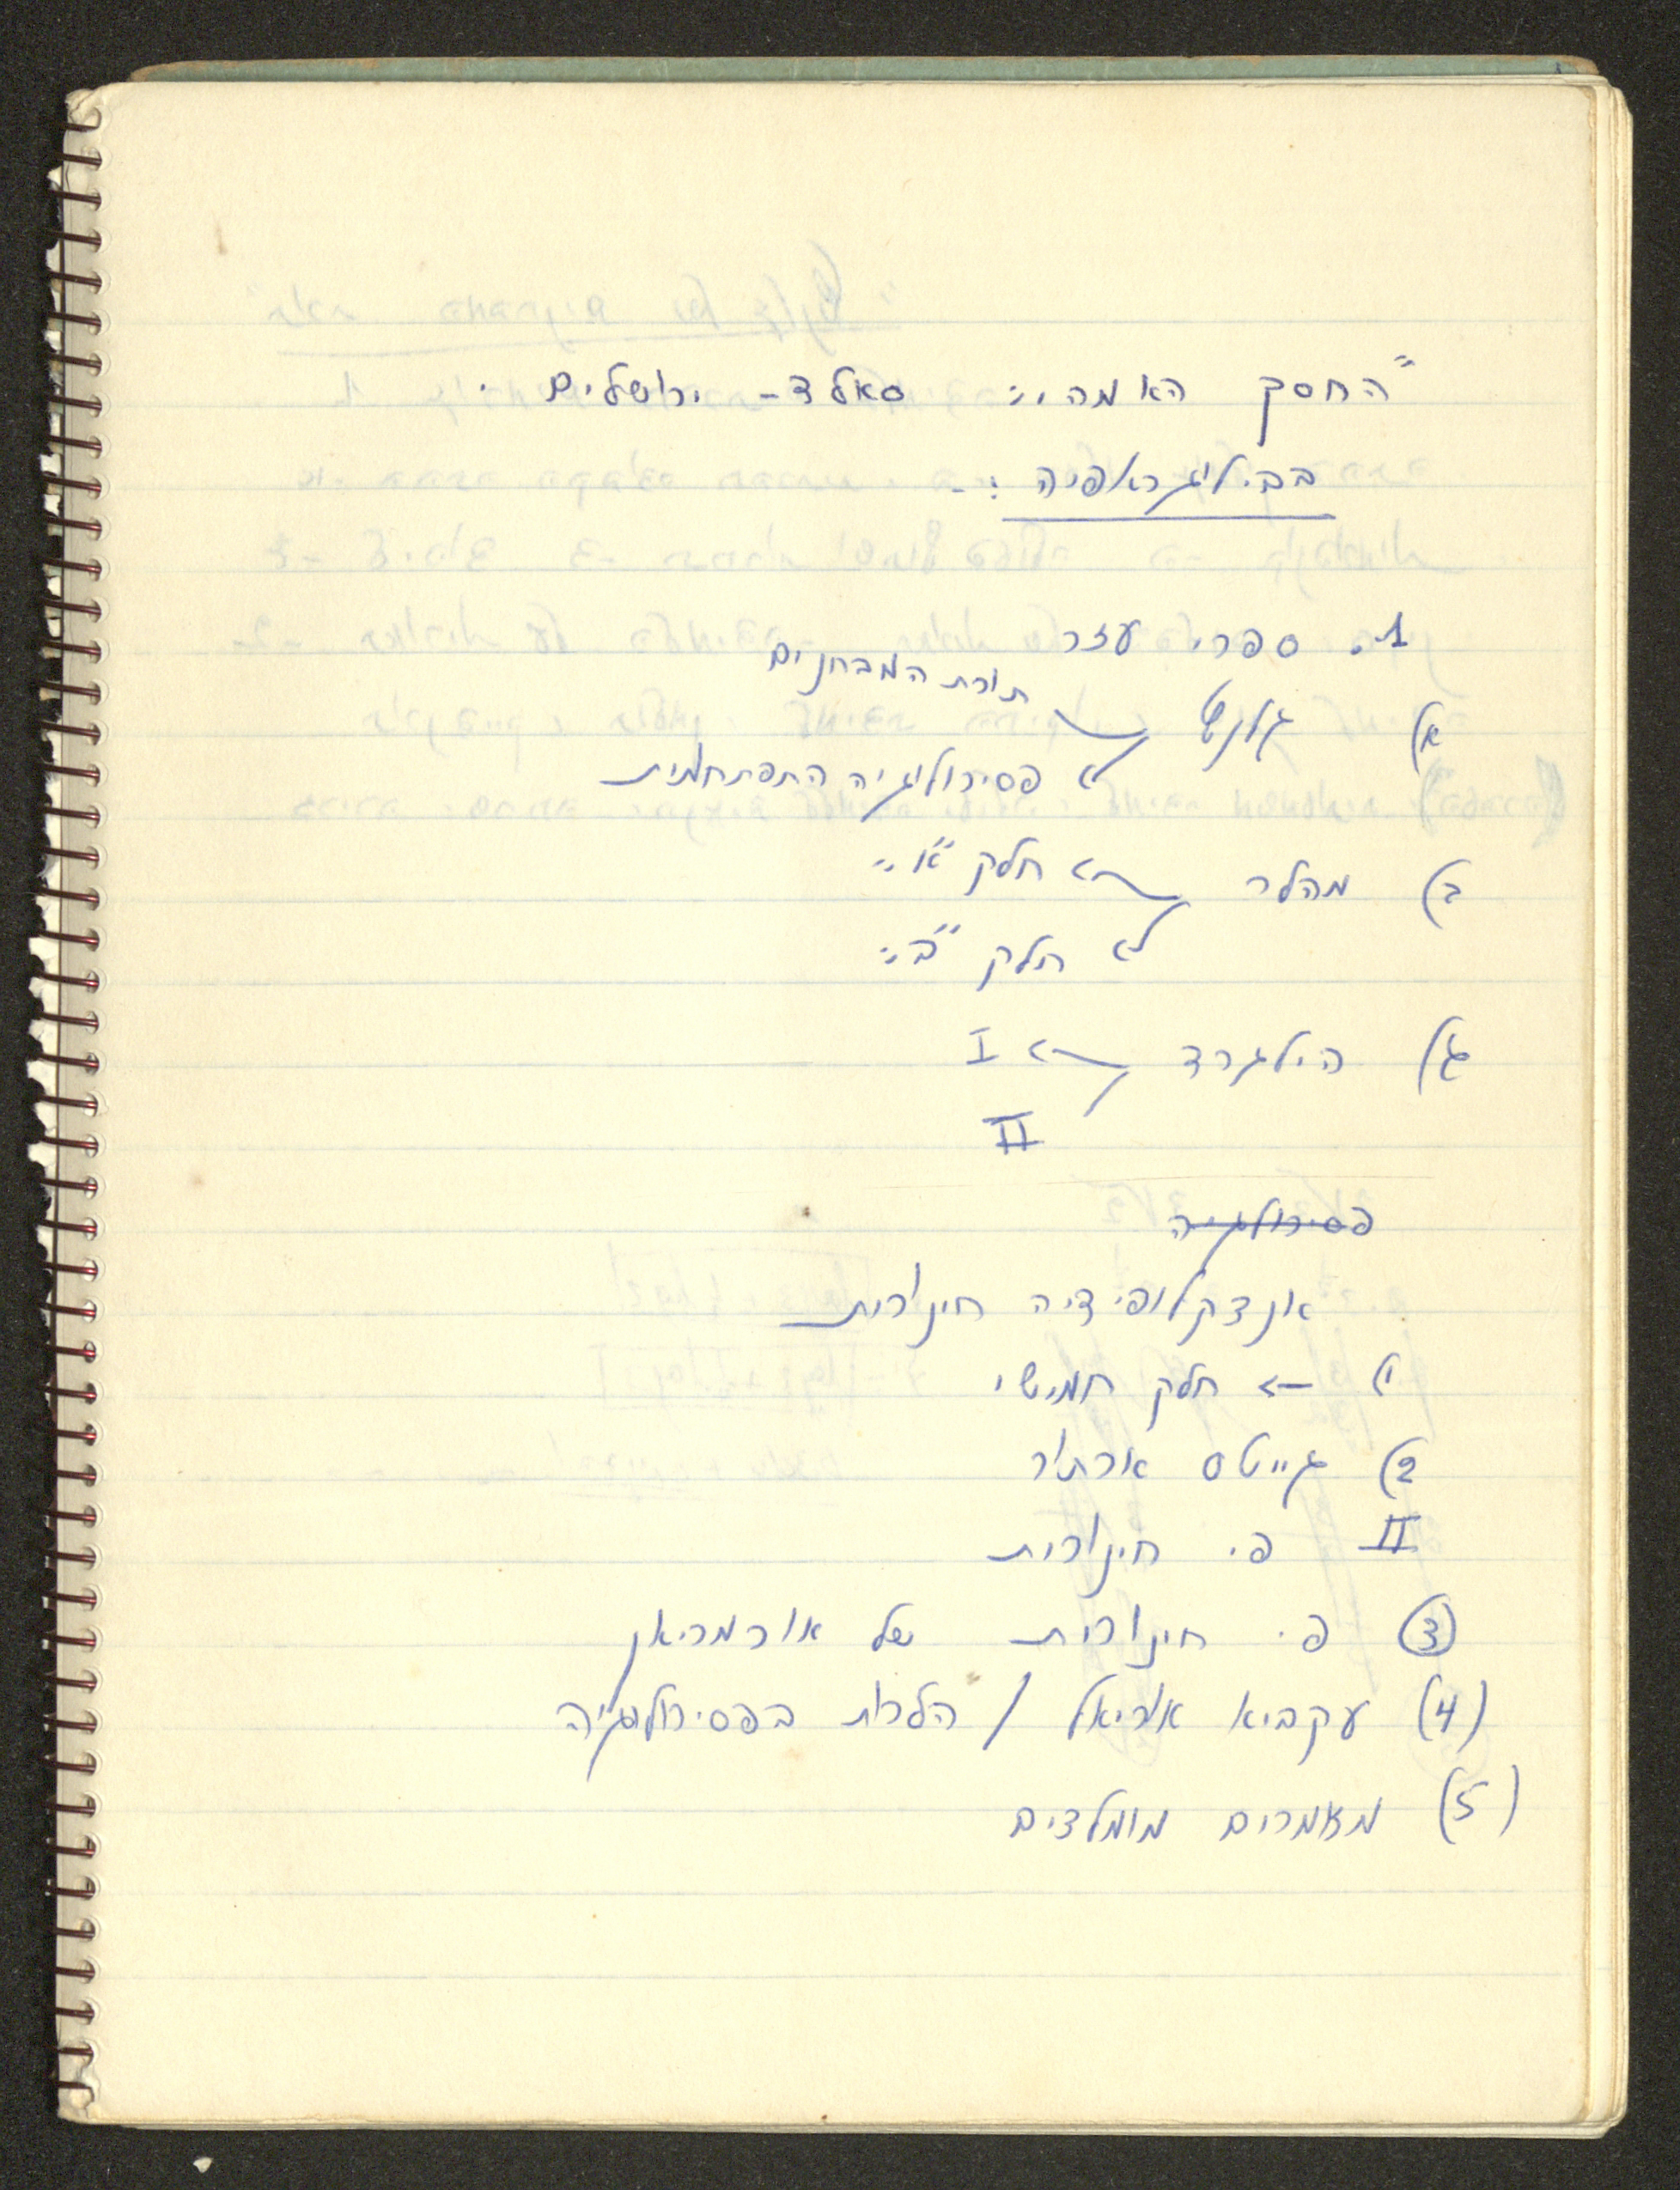 "החסך האמהי" סאלד - ירושלים.
בביליוגראפיה :-
1. ספרי עזר
א) גלנט ← תורת המבחנים
← פסיכולוגיה התפתחותית
ב) מהלר ← חלק "א"
← חלק "ב"
ג) הילגרד ← I
II
פסיכולוגיה
אנצקלופידיה חינוכית
1) ← חלק חמישי
2) גייטס ארתור
II פ. חינוכית
(3) פ. חינוכית של אורמריאן
(4) עקביא אוריאל / הלכות בפסיכולוגיה
(5) מאמרים מומלצים